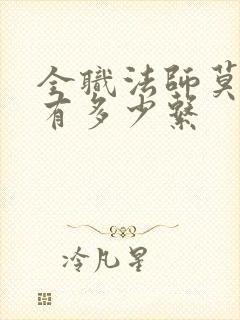 全職法師莫
有多少繫
冷凡星